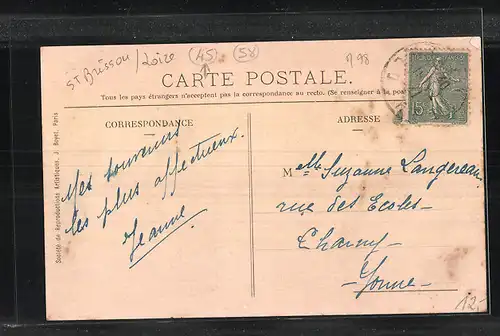 St Brisson / Loire 45 58
P98
CARTE POSTALE.
Tous les pays étrangers n'acceptent pas la correspondance au recto. (Se renseigner à la pos
CORRESPONDANCE
ADRESSE
Société de Reproductions Artistiques, J. Boyer, Paris
15
Mes souvenirs
les plus affectueux.
Jeanne
Melle Suzanne Langereau
rue des Ecoles
Charny
Yonne
12.-